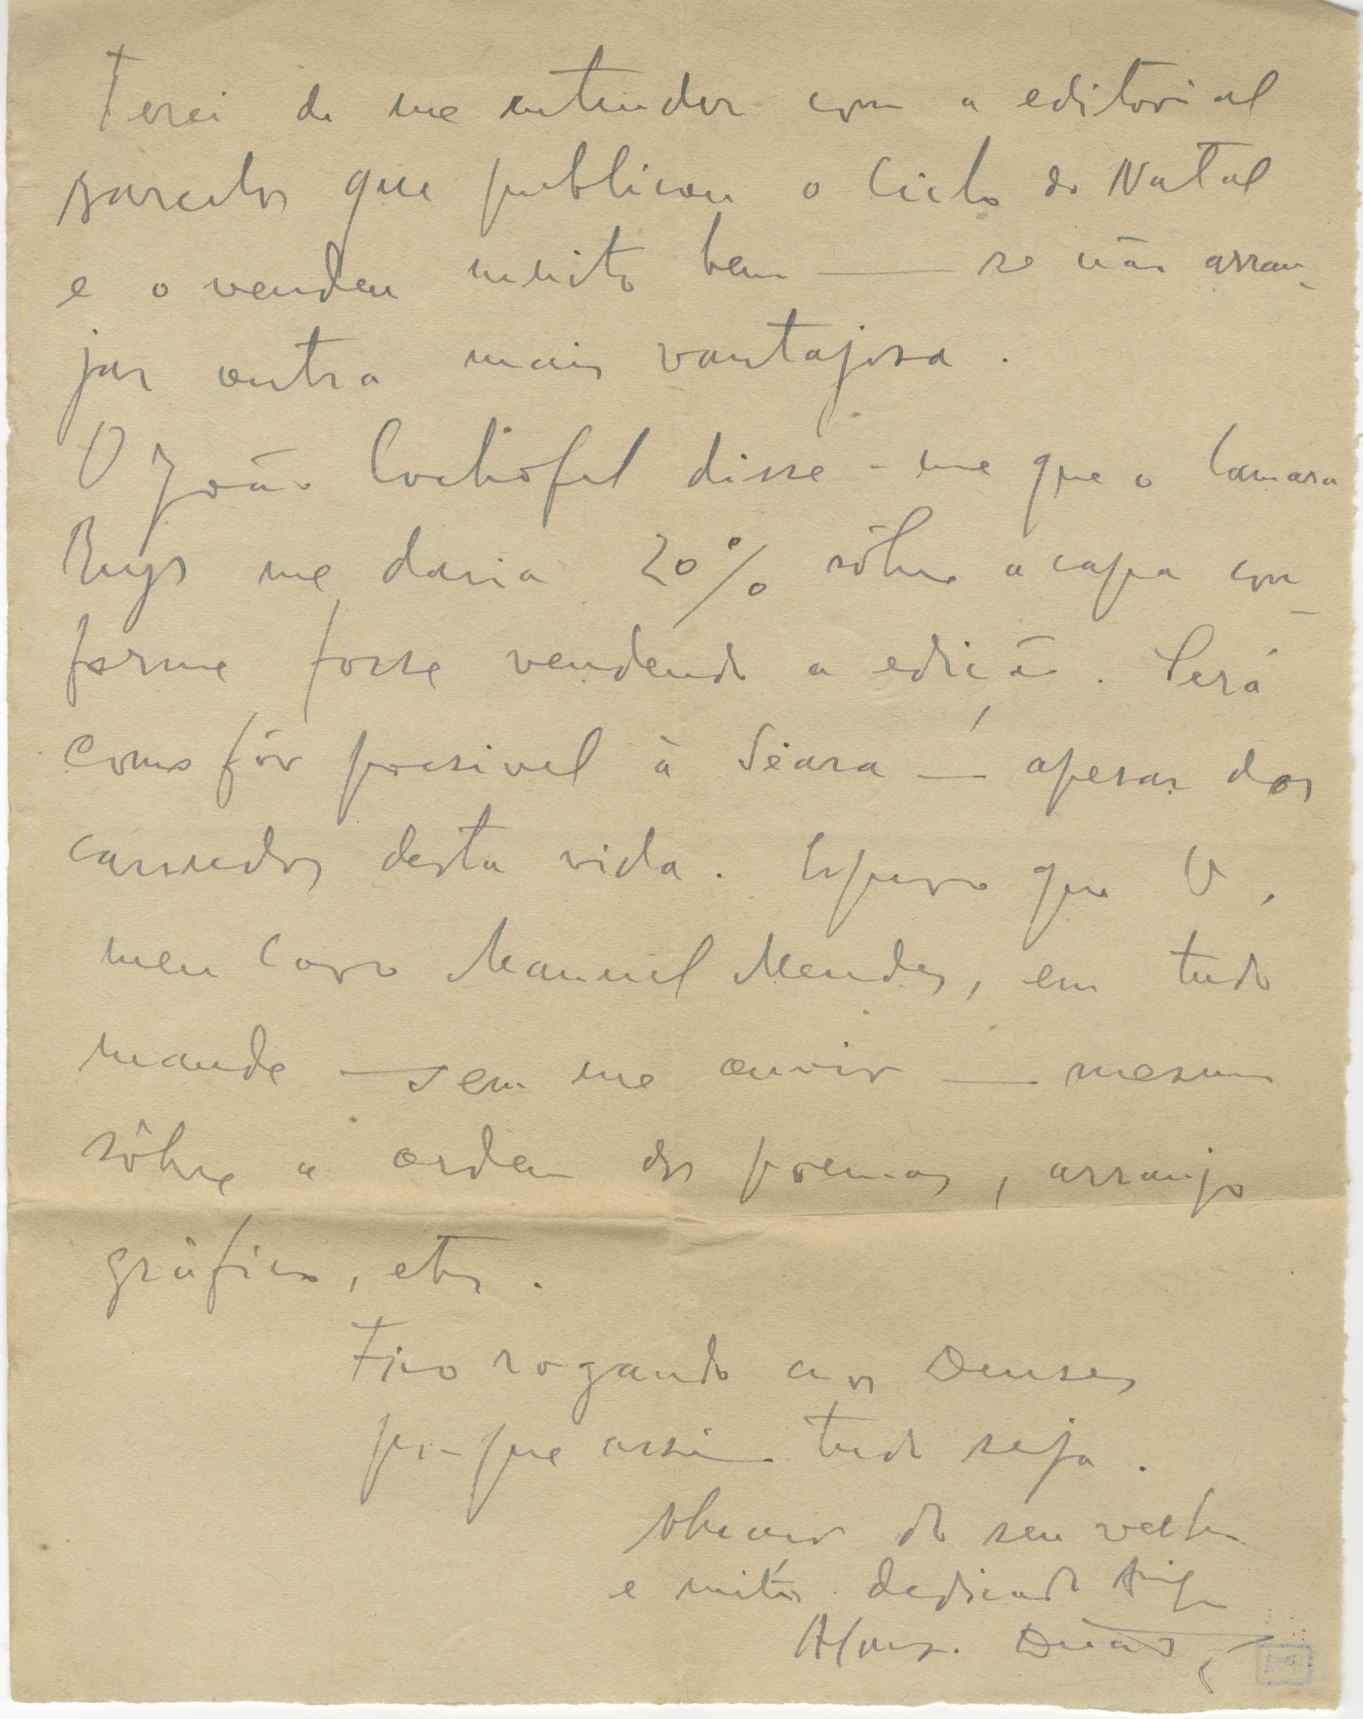 Terei de me entender com a editorial
Barcelos que publicou o Ciclo do Natal
e o vendeu muito bem — se não arran-
jar outra mais vantajosa.
O João Cochofel disse-me que o Camara
Reys me daria 20% sôbre a capa con-
forme fosse vendendo a edição. Será
como fôr possivel à Seara — apesar dos
cansados desta vida. Espero que V,
meu Caro Manuel Mendes, em tudo
mande — sem me ouvir — mesmo
sôbre a ordem dos poemas, arranjo
gráfico, etc.
Fico rogando aos Deuses
pr-que assim tudo seja.
Abraço do seu velho
e muito dedicado Amigo
Afonso Duarte